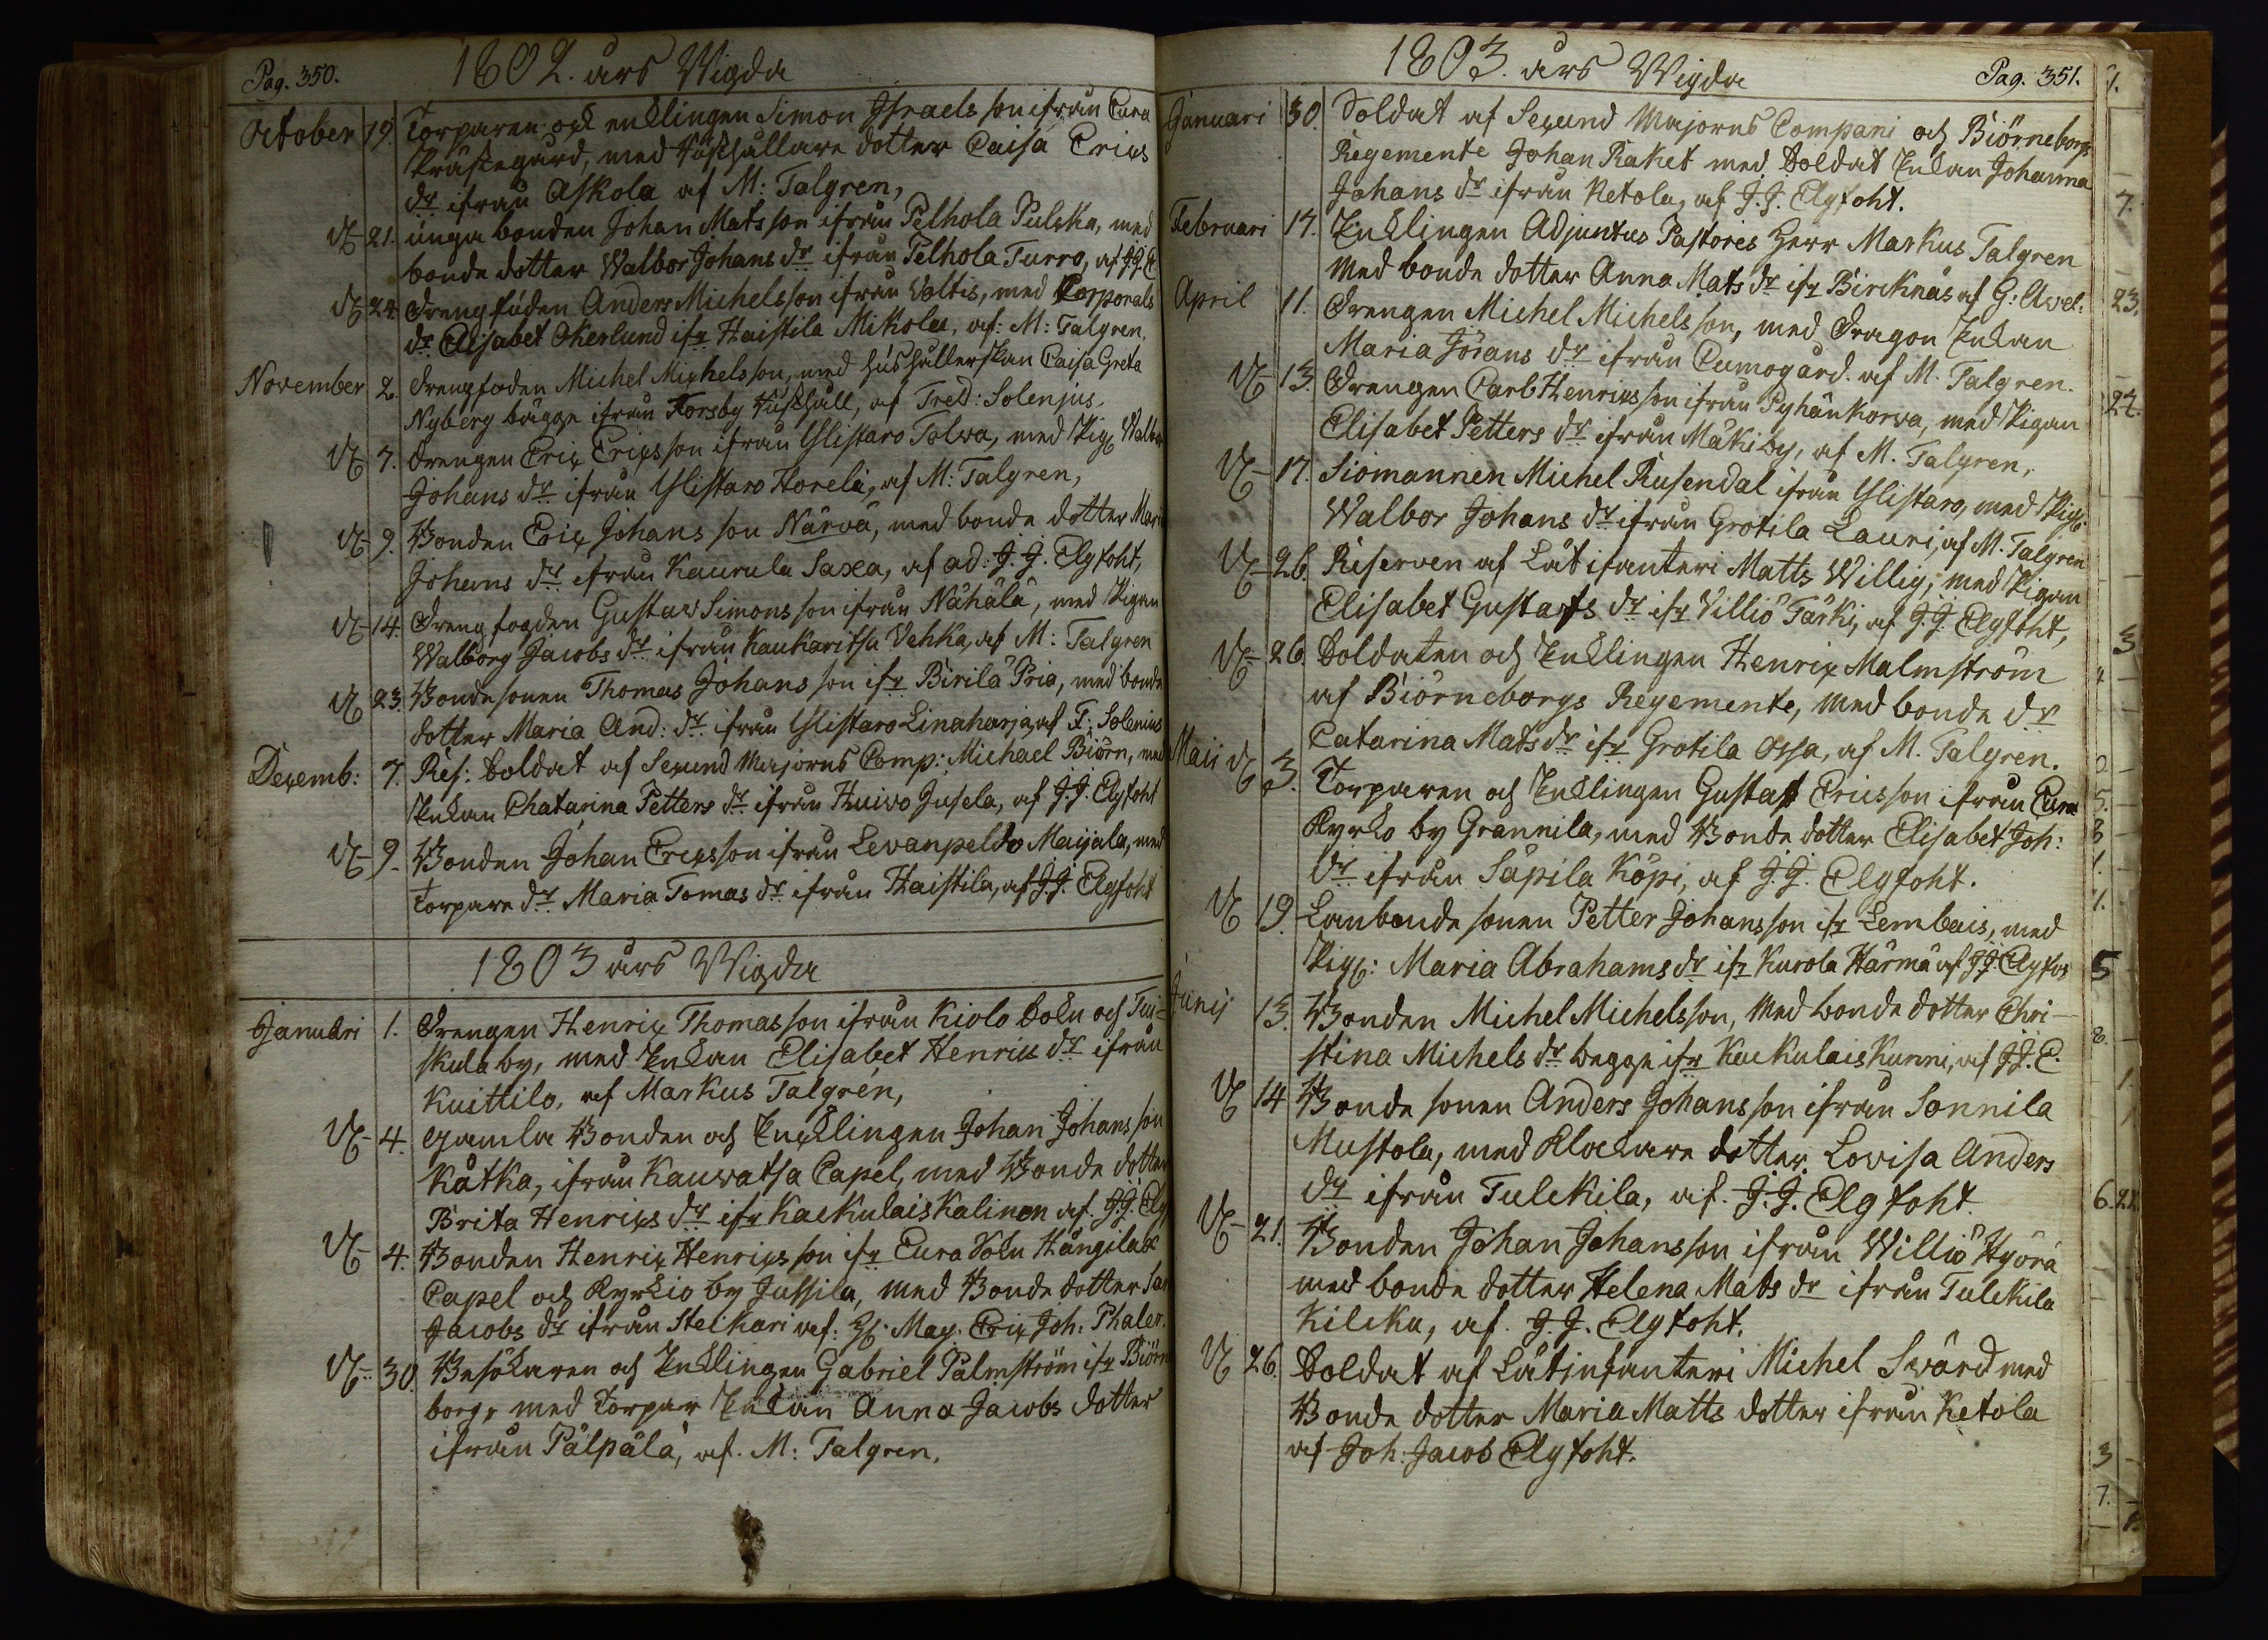 Pag. 350.
1802. års Wigda
October 19. Torparen och enklingen Simon Israels son ifrån Eura
Prästegård, med hushållare dotter Caisa Erics
dr ifrån Askola af M: Talgren,
21. unga bonden Johan Mats son ifrån Pelhola Pulska, med
bonde dotter Walbor Johans dr ifrån Pelhola Turro, af J.J. E
24. Drengfåden Anders Michelsson ifrån Voltis, med Corporals
dr Elisabet Okerlund ifr Haistila Mikola, af: M: Talgren.
November 2. Drengfoden Michel Michelsson, med hushållerskan Caisa Greta
Nyberg bägge ifrån Forsby hushåll, af Fred: Solenius.
7. Drengen Eric Ericsson ifrån Ylistaro Tolwa, med Pig: Walbor
Johans dr ifrån Ylistaro Horeli, af M: Talgren,
9. Bonden Eric Johans son Närvä, med bonde dotter Mari
Johans dr ifrån Kaurula Saxa, af ad: J. J. Elgfoht,
14. Drengfogden Gustav Simons son ifrån Nähälä, med Pigan
Walborg Jacobs dr ifrån Kaukaritsa Vehka, af M: Talgren
23. Bondesonen Thomas Johans son ifr Birilä Pria, med bonde
dotter Maria And: dr ifrån Ylistaro Linaharja, af F: Solenius
Decemb: 7. Res: Soldat af Secund Majorns Comp: Michael Biörn, med
Enkan Chatarina Petters dr ifrån Huivo Jusela, af J. J. Elgfoht
9. Bonden Johan Ericsson ifrån Levanpeldo Maijala, med
Torpare dr Maria Tomas dr ifrån Haistila, af J. J. Elgfoht
1803 års Wigda
Januari 1. Drengen Henric Thomas son ifrån Kiolo Sokn och Tui-
skula by, med Enkan Elisabet Henrics dr ifrån
Kuittilo, af Markus Talgrén,
4. Gamla Bonden och Encklingen Johan Johans son
Kåtka, ifrån Kauvatsa Capel, med Bonde dotter
Brita Henrics dr ifr Kackulais Kalinen af. J.J. Elg
4. Bonden Henric Henrics son ifr Eura Sokn Hångilax
Capel och Kyrkio by Jussila, med Bonde dotter Sar
Jacobs dr ifrån Steikari af: H: Mag. Eric Joh. Phaler.
30. Besökaren och Enklingen Gabriel Palmström ifr Biörne
borg, med Torpar Enkan Anna Jacobs dotter
ifrån Pälpälä, af. M: Talgren.
1803. års Wigda
Pag. 351.
Januari 30. Soldat af Secund Majorns Compani och Biörneborgs
Regemente Johan Raket med Soldat Enkan Johanna
Johans dr ifrån Ketola, af J. J. Elgfoht.
Februari 17. Enklingen Adjuntus Pastores Herr Markus Talgren
Med bonde dotter Anna Mats dr ifr Bircknäs af G: Avel:
April 11. Drengen Michel Michels son, med Dragon Enkan
Maria Jörans dr ifrån Cumogård. af M. Talgren.
13. Drengen Carl Henricsson ifrån Pyhänkorva, med Pigan
Elisabet Petters dr ifrån Mäkiby, af M. Talgren,
17. Siömannen Michel Rusendal ifrån Ylistaro, med Pig:
Walbor Johans dr ifrån Grotila Lauri, af M. Talgren
26. Reserven af Lät ifanteri Matts Willig, med Pigan
Elisabet Gustafs dr ifr Villiö Tarki, af J. J. Elgfoht,
26. Soldaten och Enklingen Henric Malmström
af Biörneborgs Regemente, Med bonde dr
Catarina Mats dr ifr Grotila Ossa, af M. Talgren.
Maii 3. Torparen och Enklingen Gustaf Ericsson ifrån Eura
Kyrko by Grannila, med Bonde dotter Elisabet Joh:
dr ifrån Säpilä Köpi, af J. J. Elgfoht.
19. Lanbonde sonen Petter Johansson ifr Lembais, med
Pig: Maria Abrahams dr ifr Kurola Härmä af J.J. Elgfot
Junij 13. Bonden Michel Michelsson, Med bonde dotter Chri-
stina Michels dr begge ifr Kackulais Kunni, af J. J. E.
14 Bonde sonen Anders Johansson ifrån Sonnila
Mustola, med Klockare dotter Lovisa Anders
dr ifrån Tulckila, af. J. J. Elgfoht.
21. Bonden Johan Johansson ifrån Williö Hyörä
med bonde dotter Helena Mats dr ifrån Tulckila
Kilcku, af. J. J. Elgfoht.
26. Soldat af Lätinfanteri Michel Swärd med
Bonde dotter Maria Matts dotter ifrån Ketola
af Joh. Jacob Elgfoht.